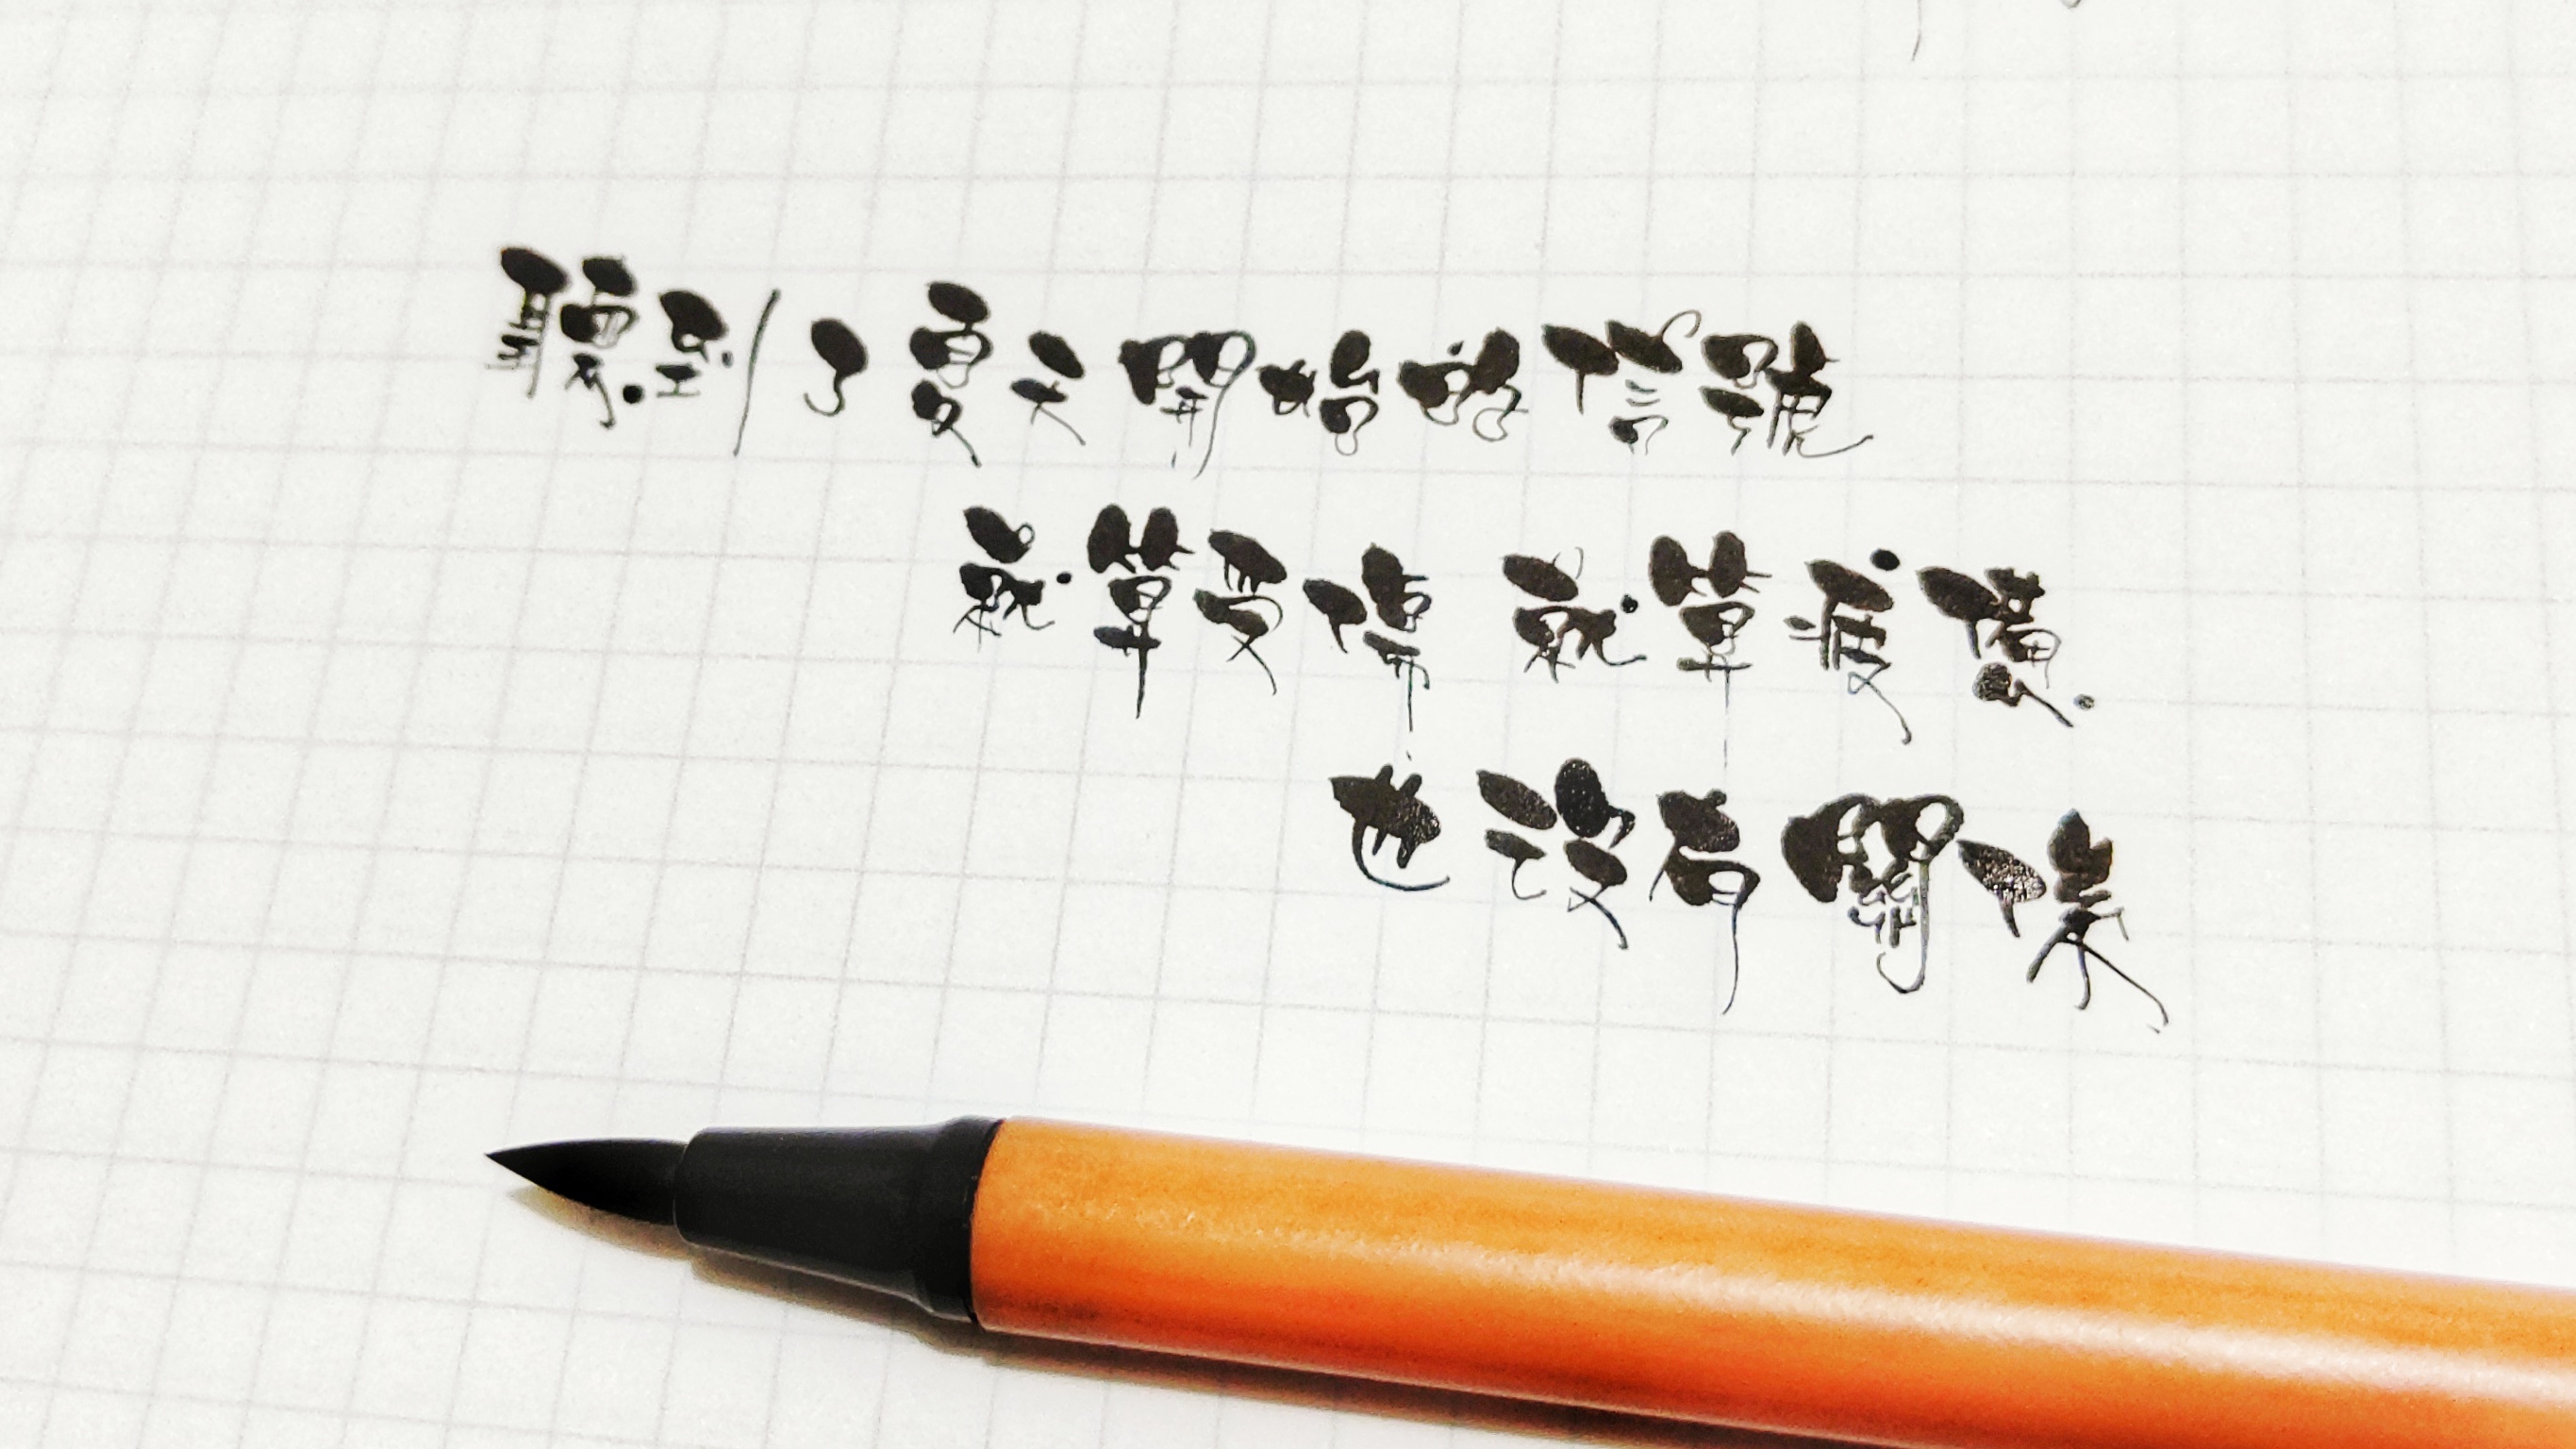 聽到了夏天開始的信號
就算受傷 就算疲憊
也沒有關係